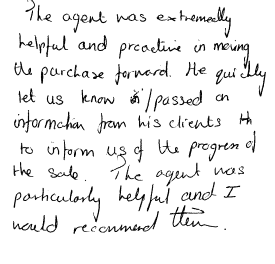 The agent was extremely
helpful and proactive in moving
the purchase forward. He quickly
let us know /passed on
information from his clients
to inform us of the progress of
the sale. The agent was
particularly helpful and I
would recommend them.